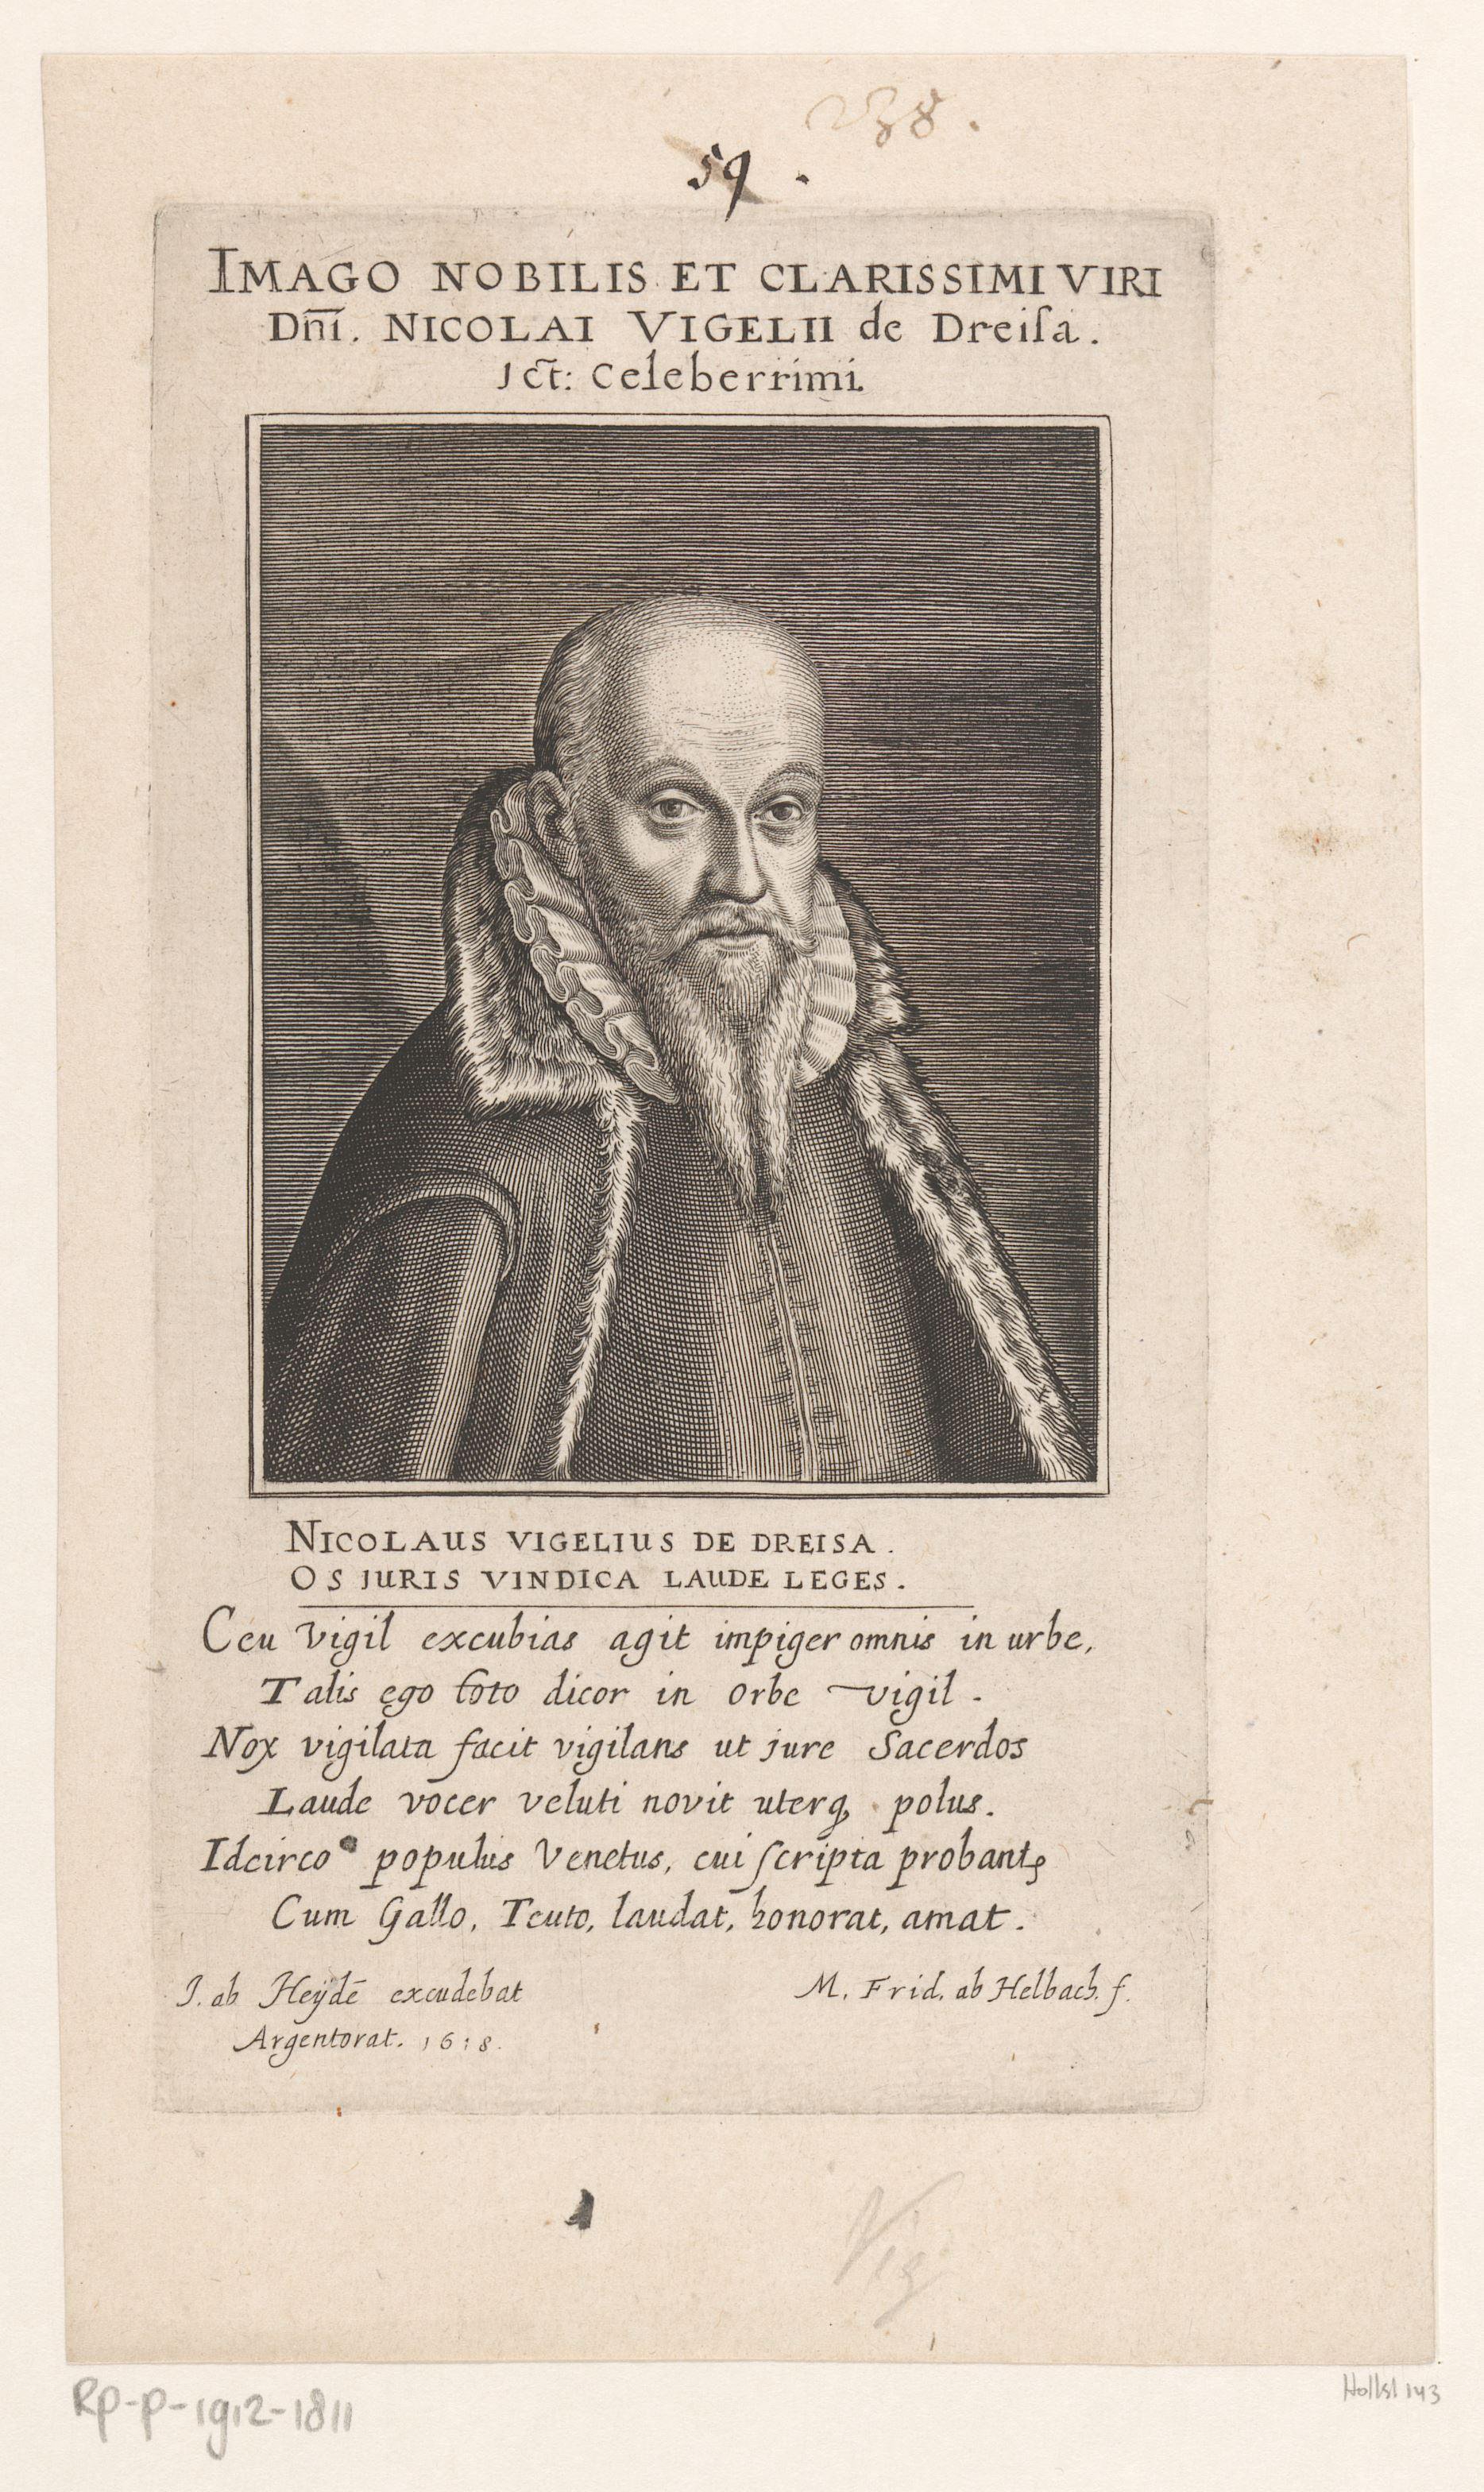 238.
59.
IMAGO NOBILIS ET CLARISSIMI VIRI
Dn̄i. NICOLAI VIGELII de Dreiſa.
Jc̄t: Celeberrimi.
NICOLAUS VIGELIUS DE DREISA.
OS JURIS VINDICA LAUDE LEGES.
Ceu Vigil excubias agit impiger omnis in urbe,
Talis ego toto dicor in Orbe vigil.
Nox vigilata facit vigilans ut jure Sacerdos
Laude vocer veluti novit uterq; polus.
Idcirco populus Venetus, cui ſcripta probantꝭ
Cum Gallo, Teuto, laudat, honorat, amat.
J. ab Heydē excudebat
Argentorat. 1618.
M. Frid. ab Helbach. f.
Vig
RP-P-1912-1811
Hollst 143